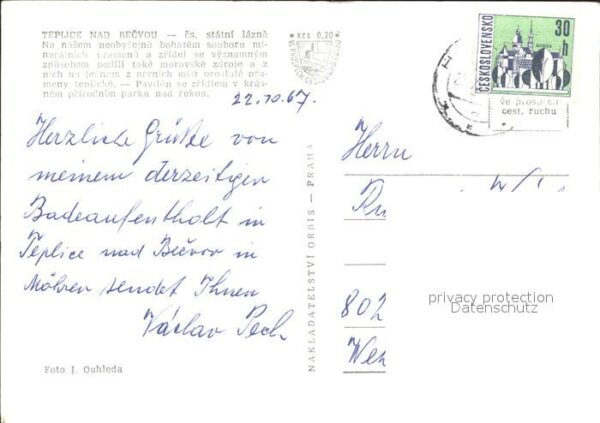 TEPLICE NAD BEČVOU — čs. státní lázně
Na našem neobyčejně bohatém souboru mi-
nerálních pramenů a zřídel se významným
způsobem podílí také moravské zdroje a z
nich na jednom z prvních míst proslulé pra-
meny teplické. — Pavilón se zřídlem v krás-
ném přírodním parku nad řekou.
Kčs 0,20
22.10.67.
Herzliche Grüße von
meinem derzeitigen
Badeaufentholt in
Teplice nad Bečvou in
Möhren sendet Ihnen
Václav Pech
Foto J. Ouhleda
NAKLADATELSTVÍ ORBIS — PRAHA
ČESKOSLOVENSKO
30
h
cest. ruchu
Herrn
802
privacy protection
Datenschutz